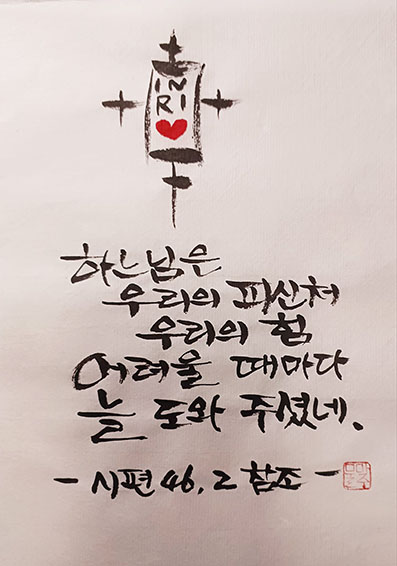 IN
RI
하느님은
우리의 피신처
우리의 힘
어려울 때마다
늘 도와 주셨네.
- 시편 46, 2 참조 -